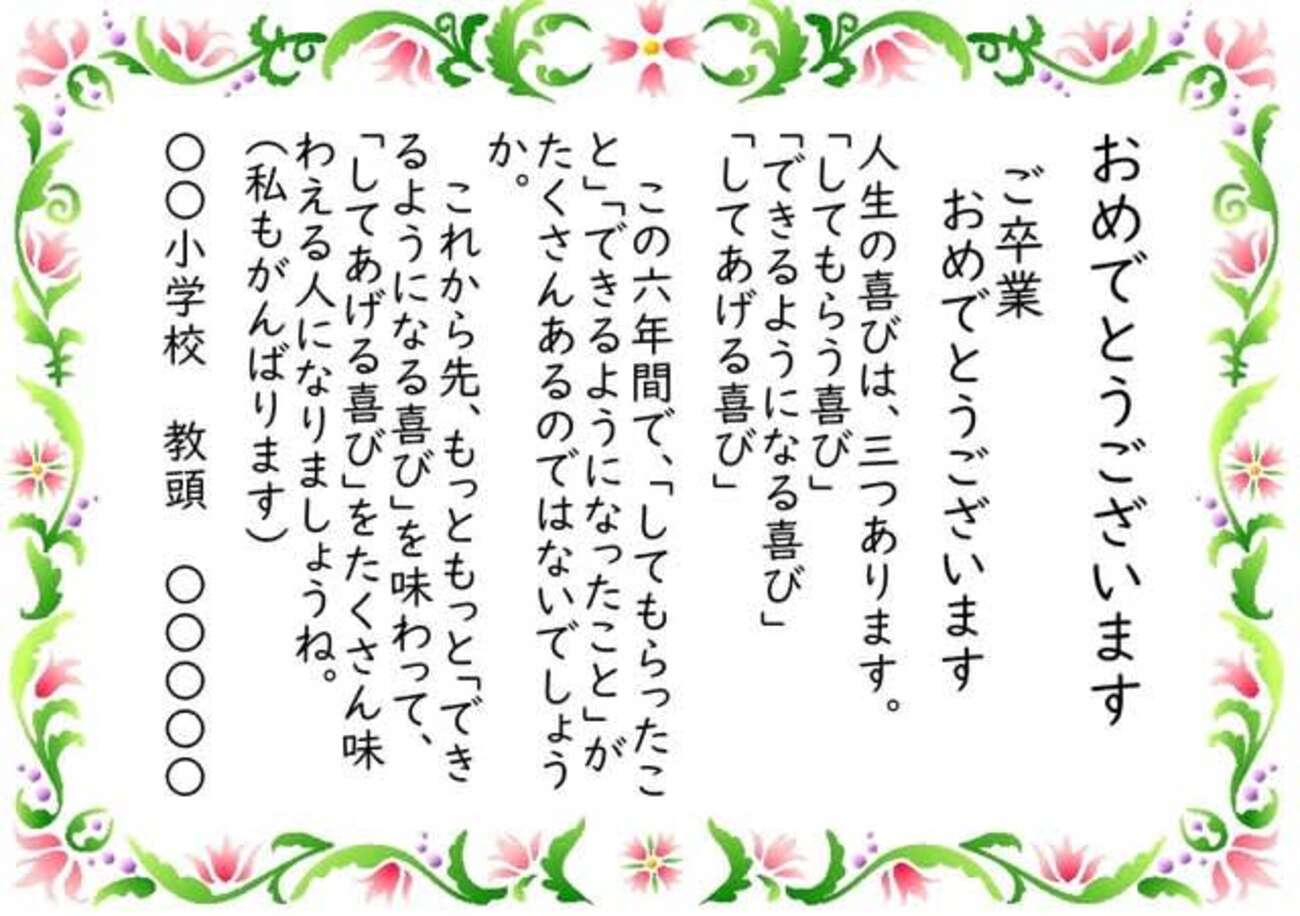 おめでとうございます
ご卒業
おめでとうございます
人生の喜びは、三つあります。
「してもらう喜び」
「できるようになる喜び」
「してあげる喜び」
この六年間で、「してもらったこ
と」「できるようになったこと」が
たくさんあるのではないでしょう
か。
これから先、もっともっと「でき
るようになる喜び」を味わって、
「してあげる喜び」をたくさん味
わえる人になりましょうね。
（私もがんばります）
〇〇小学校　教頭　〇〇〇〇〇